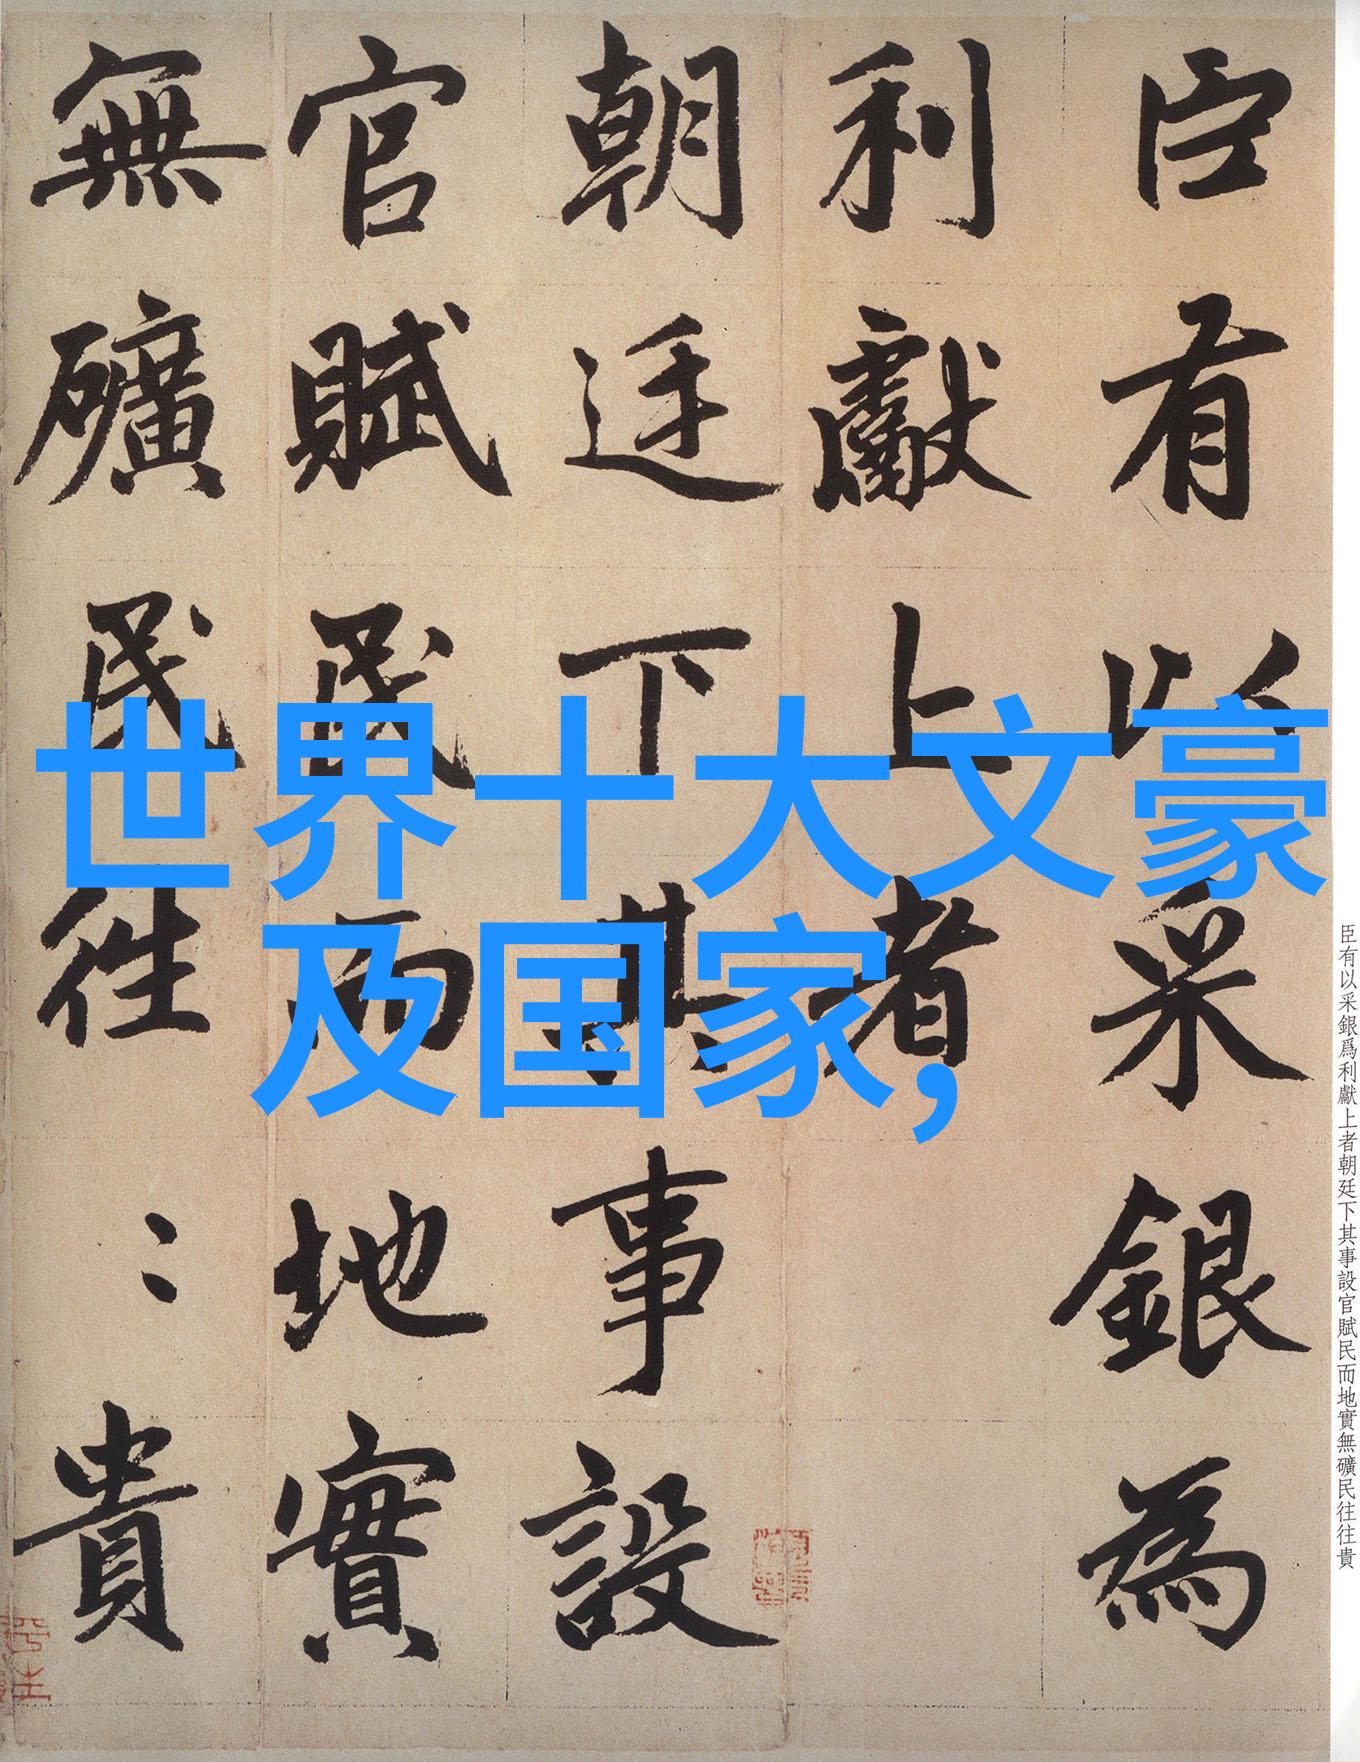 世界十大文豪
及国家,
臣有以采銀為
利獻上者
朝廷下其事設
官賦民而地實
無礦民往〻貴
臣有以采銀爲利獻上者朝廷下其事設官賦民而地實無礦民往往貴